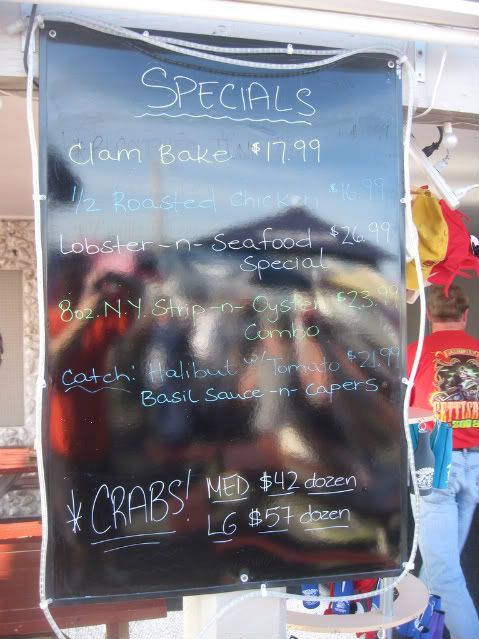 SPECIALS
Clam Bake $17.99
1/2 Roasted Chicken $16.99
Lobster-n-Seafood $26.99
Special
8oz. N.Y. Strip-n-Oyster $23.99
Combo
Catch: Halibut w/Tomato $21.99
Basil Sauce-n-Capers
* CRABS! MED $42 dozen
LG $57 dozen